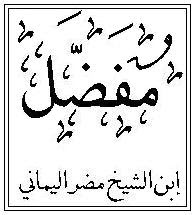 مُفَضَّل
إبن الشيخ مضر اليماني